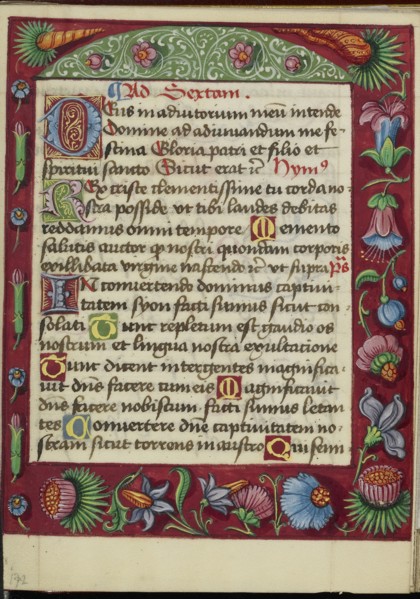 Ad Sextam.
Deus in adiutorium meū intende
Domine ad adiuuandum me fe-
stina Gloria patri et filio et
spiritui sancto Sicut erat ic̄ Hymꝰ
Rex criste clementissime tu corda no-
stra posside vt tibi laudes debitas
reddamus omni tempore Memento
salutis auctor qꝫ nostri quondam corporis
exillibata virgine nascendo ic̄ vt supra p̄s
IN conuertendo dominus captiui-
tatem syon facti sumus sicut con-
solati Tunc repletum est gaudio os
nostrum et lingua nostra exultacione
Tunc dicent inter gentes magnifica-
uit dn̄s facere cum eis Magnificauit
dn̄s facere nobiscum facti sumus letan-
tes Conuertere dn̄e captiuitatem no-
stram sicut torrens in austro Qui semi-